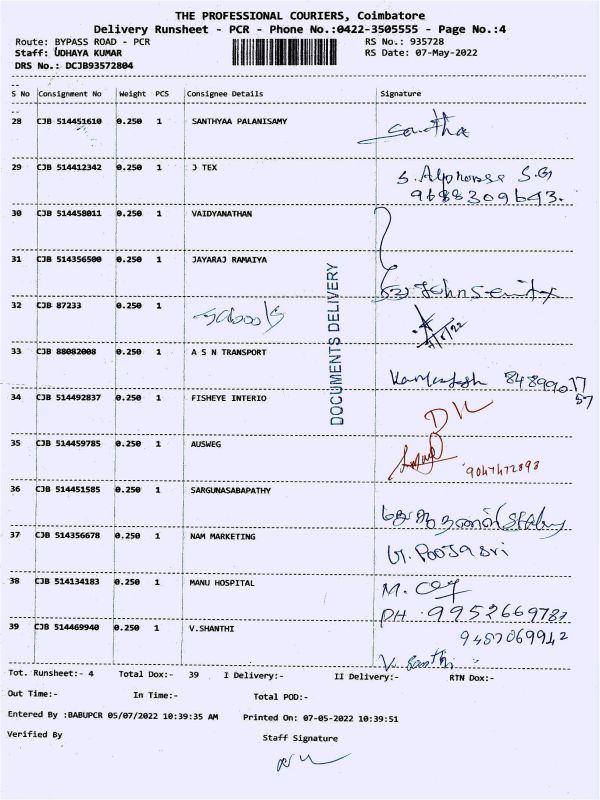 THE PROFESSIONAL COURIERS, Coimbatore
Delivery Runsheet - PCR - Phone No.:0422-3505555 - Page No.:4
Route: BYPASS ROAD - PCR RS No.: 935728
Staff: UDHAYA KUMAR RS Date: 07-May-2022
DRS No.: DCJB93572804
S No Consignment No Weight PCS Consignee Details Signature
28 CJB 514451610 0.250 1 SANTHYAA PALANISAMY Santha
29 CJB 514412342 0.250 1 J TEX S. Alphonse S.G
9688309643.
30 CJB 514458011 0.250 1 VAIDYANATHAN
31 CJB 514356500 0.250 1 JAYARAJ RAMAIYA
32 CJB 87233 0.250 1
33 CJB 88082008 0.250 1 A S N TRANSPORT
34 CJB 514492837 0.250 1 FISHEYE INTERIO
35 CJB 514459785 0.250 1 AUSWEG
36 CJB 514451585 0.250 1 SARGUNASABAPATHY
37 CJB 514356678 0.250 1 NAM MARKETING
38 CJB 514134183 0.250 1 MANU HOSPITAL
PH. 9952669787
39 CJB 514469940 0.250 1 V.SHANTHI
DOCUMENTS DELIVERY
Tot. Runsheet:- 4 Total Dox:- 39 I Delivery:- II Delivery:- RTN Dox:-
Out Time:- In Time:- Total POD:-
Entered By :BABUPCR 05/07/2022 10:39:35 AM Printed On: 07-05-2022 10:39:51
Verified By Staff Signature